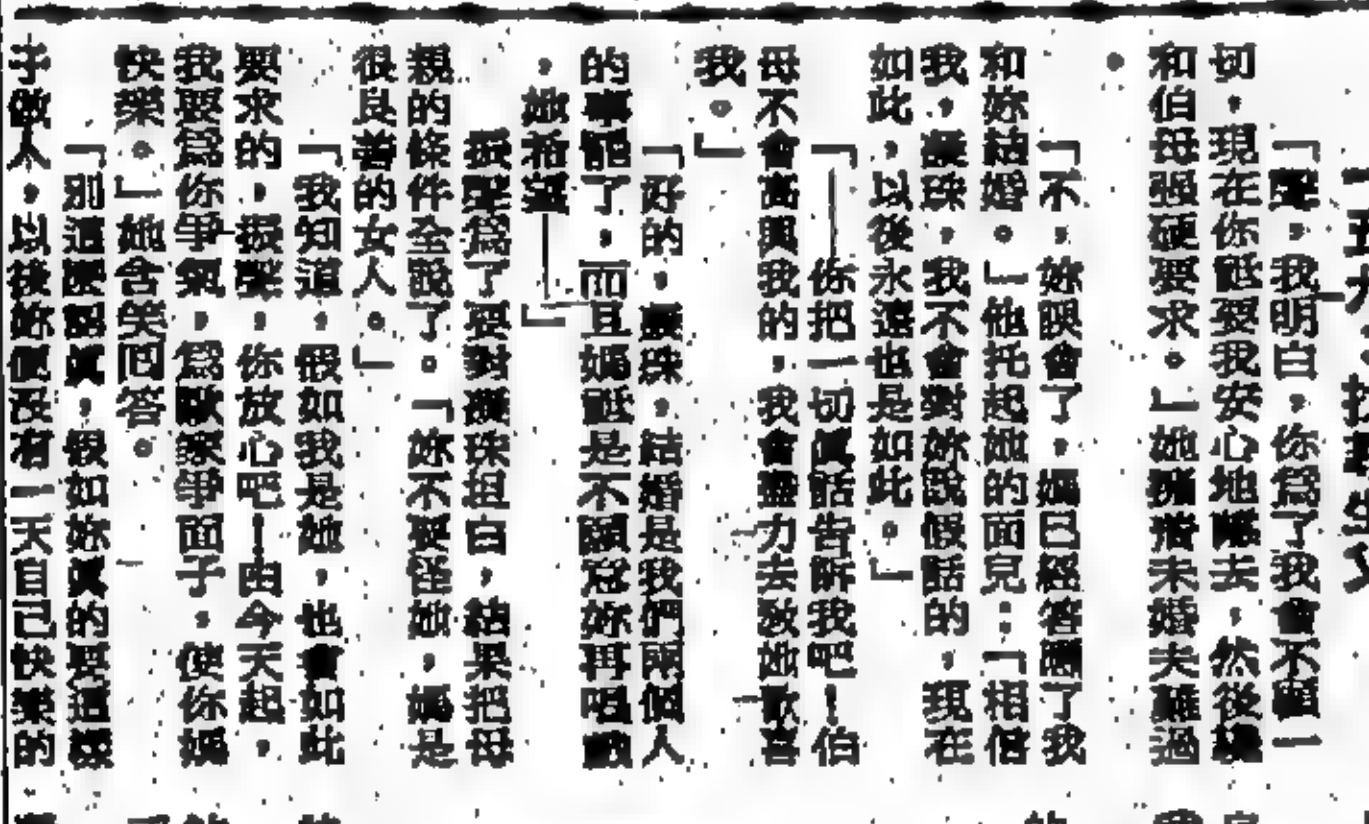 「聲，我明白，你爲了我會不顧一
切，現在你祗要我安心地睡去，然後
和伯母强硬要求。」她擁着未婚夫難過
。
「不，妳誤會了，媽已經答應了我
和妳結婚。」他托起她的面兒：「相信
我，凝珠，我不會對妳說假話的，現在
如此，以後永遠也是如此。」
「——你把一切眞話告訴我吧！伯
母不會高興我的，我會盡力去敎她歡喜
我。」
「好的，凝珠，結婚是我們兩個人
的事罷了，而且媽祗是不願意妳再唱戲
，她希望——」
振聲爲了要對凝珠坦白，結果把母
親的條件全說了。「妳不要怪她，媽是
很良善的女人。」
「我知道，假如我是她，也會如此
要求的，振聲，你放心吧——由今天起，
我要爲你爭氣，爲歐家爭面子，使你媽
快樂。」她含笑回答。
「別這麼認眞，假如妳眞的要這樣
子做人，以後妳便沒有一天自己快樂的